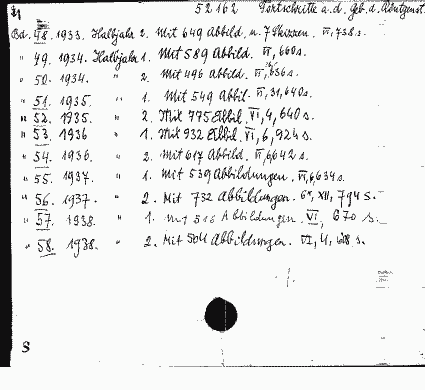 52162 Fortschritte a. d. Geb. d. Röntgenst.
Bd. 48. 1933. Halbjahr 2. Mit 649 Abbild. u. 7 Skizzen. VI, 738 s.
" 49. 1934. Halbjahr 1. Mit 589 Abbild. VI, 660 s.
" 50. 1934. " 2. Mit 496 Abbild. VI, 636 s.
" 51. 1935. " 1. Mit 549 Abbil. VI, 31, 640 s.
" 52. 1935. " 2. Mit 775 Abbil. VI, 4, 640 s.
" 53. 1936 " 1. Mit 932 Abbil. VI, 6, 924 s.
" 54. 1936. " 2. Mit 617 Abbild. VI, 6, 642 s.
" 55. 1937. " 1. Mit 539 Abbildungen. VI, 6, 634 s.
" 56. 1937. " 2. Mit 732 Abbildungen. 6*, XII, 794 S.
" 57. 1938. " 1. Mit 516 Abbildungen. VI, 670 s.
" 58. 1938. " 2. Mit 504 Abbildungen. VI, 4, 608 s.
S